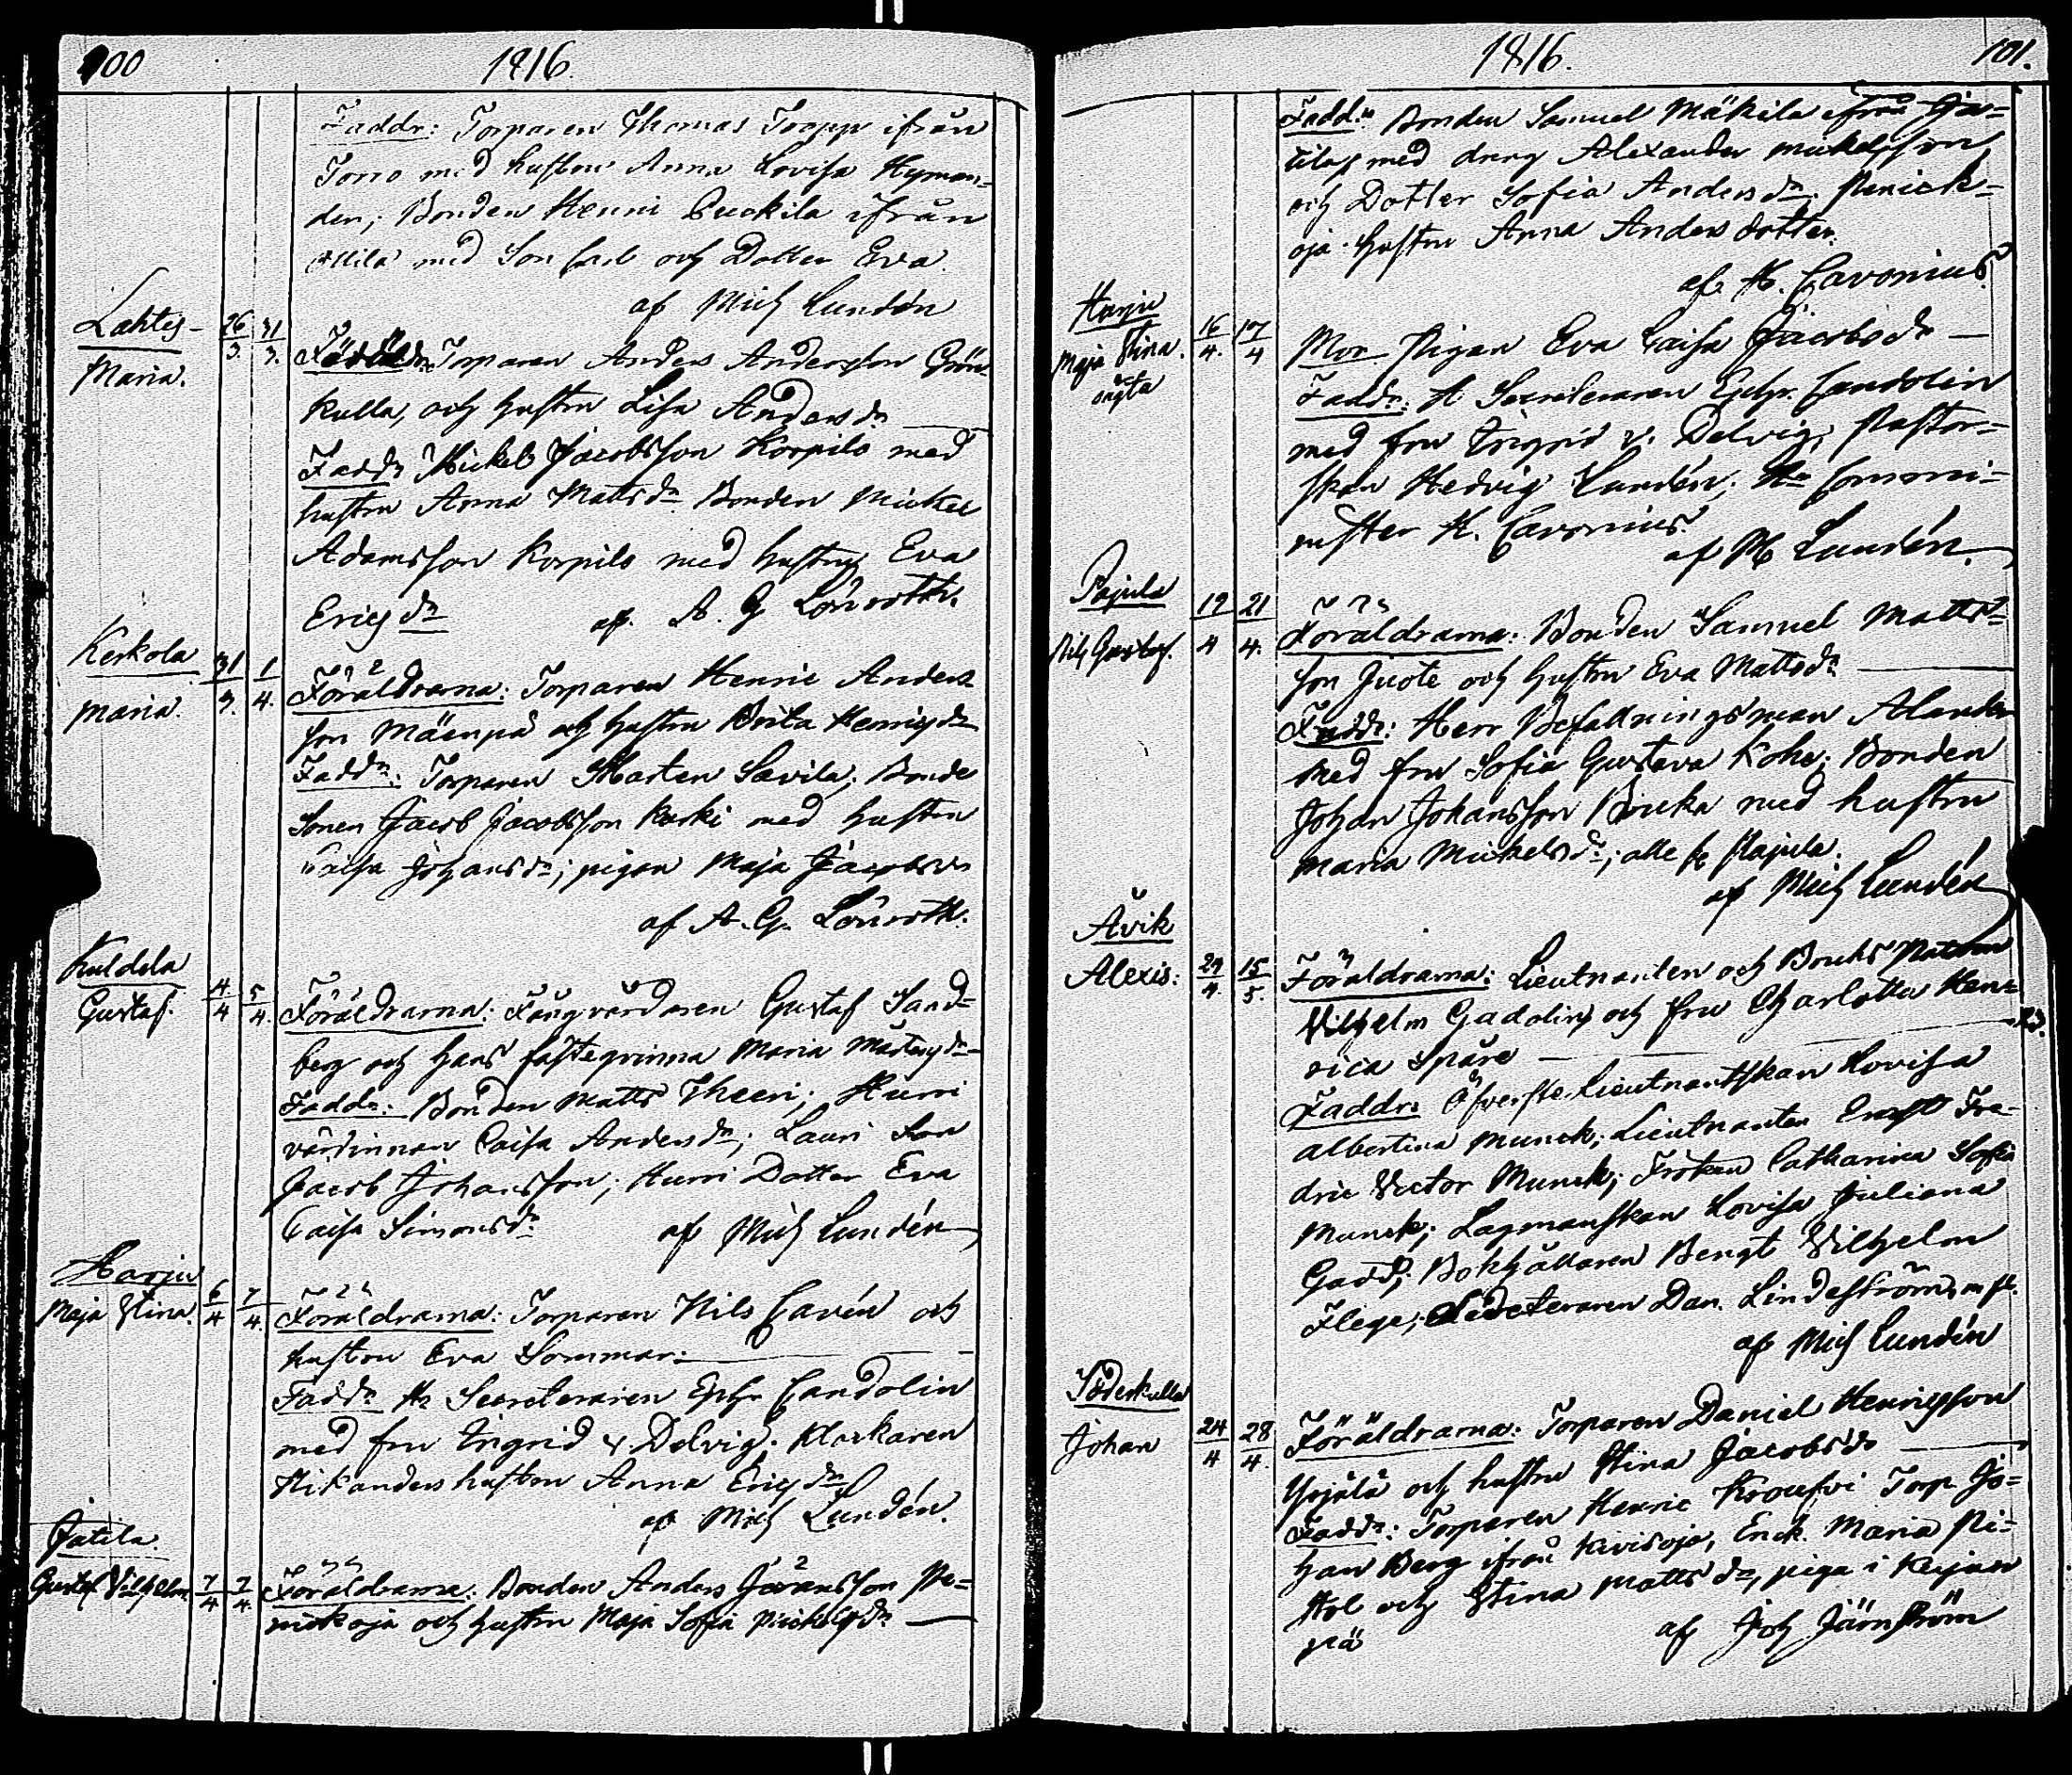 100 1816.
Faddr: Torparen Thomas Tropp ifrån
Torro med hustru Anna Lovisa Hyman=
der; Bonden Henric Puokila ifrån
med Son Carl och Dotter Eva.
af Mich Lundén
Lahtes
Maria.
26/3. 31/3.
Torparen Anders Andersson Grön
kulla, och hustru Lisa Andersdr
Faddr Mickel Jacobsson Korpilo med
hustru Anna Mattsdr Bonden Mickel
Adamsson Korpilo med hustru Eva
Ericsdr af. A. G Lönroth.
Kerkola
Maria.
31/3. 1/4.
Föräldrarna: Torparen Henric Anders
son Mäenpä och hustru Brita Henricsdr
Faddr: Torparen Mårten Savila; Bonde
Sonen Jacob Jacobsson Kerki med hustru
Caisa Johansdr; pigan Maja Jacobsdr
af A. G. Lönroth.
Kuldela
Gustaf.
4/4 5/4.
Föräldrarna: Fångvårdaren Gustaf Sand=
berg och hans fästeqvinna Maria Mårtensdr
Faddr: Bonden Matts Theeri; Hurri
värdinnan Caisa Andersdr; Lauri Son
Jacob Johansson; Hurri Dotter Eva
Caisa Simonsdr af Mich Lundén
Harju
Maja Stina.
6/4 7/4.
Föräldrarna: Torparen Nils Cavén och
hustru Eva Sommar:
Faddr Hr Secreteraren Ephr Candolin
med fru Ingrid v. Delvig; Klockaren
Nikanders hustru Anna Ericsdr
af Mich Lundén.
Jatila.
Gustaf Vilhelm.
7/4 7/4.
Föräldrarna: Bonden Anders Göransson Pe=
nickoja och hustru Maja Sofia Mickelsdr
1816. 101.
Faddr Bonden Samuel Mäkila ifrån Ja=
tila, med dräng Alexander Mickelsson
och Dotter Sofia Andersdr. Penick=
oja hustru Anna Anders dotter.
af H. Cavonius.
Harju
Maja Stina.
oägta
16/4. 17/4
Mor Pigan Eva Caisa Jacobsdr
Faddr: H Secreteraren Ephr. Candolin
med fru Ingrid v. Delvig; Pastor=
skan Hedvig Lundén; Hr Commi=
nister H. Cavonius.
af M Lundén.
Pajula
Nils Gustaf.
19/4 21/4.
Föräldrarna: Bonden Samuel Matts=
son Juote och hustru Eva Mattsdr
Faddr: Herr Befallningsman Alander
med fru Sofia Gustava Kohe; Bonden
Johan Johansson Pricka med hustru
Maria Mickelsdr; alle fr Pajula.
af Mich Lundén
Åvik
Alexis:
29/4. 15/5.
Föräldrarna: Lieutnanten och Bruks Patron
Vilhelm Gadolin och fru Charlotta Hen=
rica Spåre
Faddr: Öfverste Lieutnantskan Lovisa
Albertina Munck; Lieutnanten Ernst Fre=
dric Victor Munck; Fröken Catharina Sofia
Munck; Lagmanskan Lovisa Juliana
Gadd; Bokhållaren Bengt Vilhelm
Flege; Dan. Lindeström, m. fl.
af Mich Lundén
Söderkulla
Johan
24/4 28/4.
Föräldrarna: Torparen Daniel Henricsson
Yrjälä och hustru Stina Jacobsdr
Faddr: Torparen Henric Krousvi Torp. Jo=
han Berg ifrån Kivisoja, Enck. Maria Pi=
stol och Stina Mattsdr, piga i Keijan
pä
af Joh Jämström